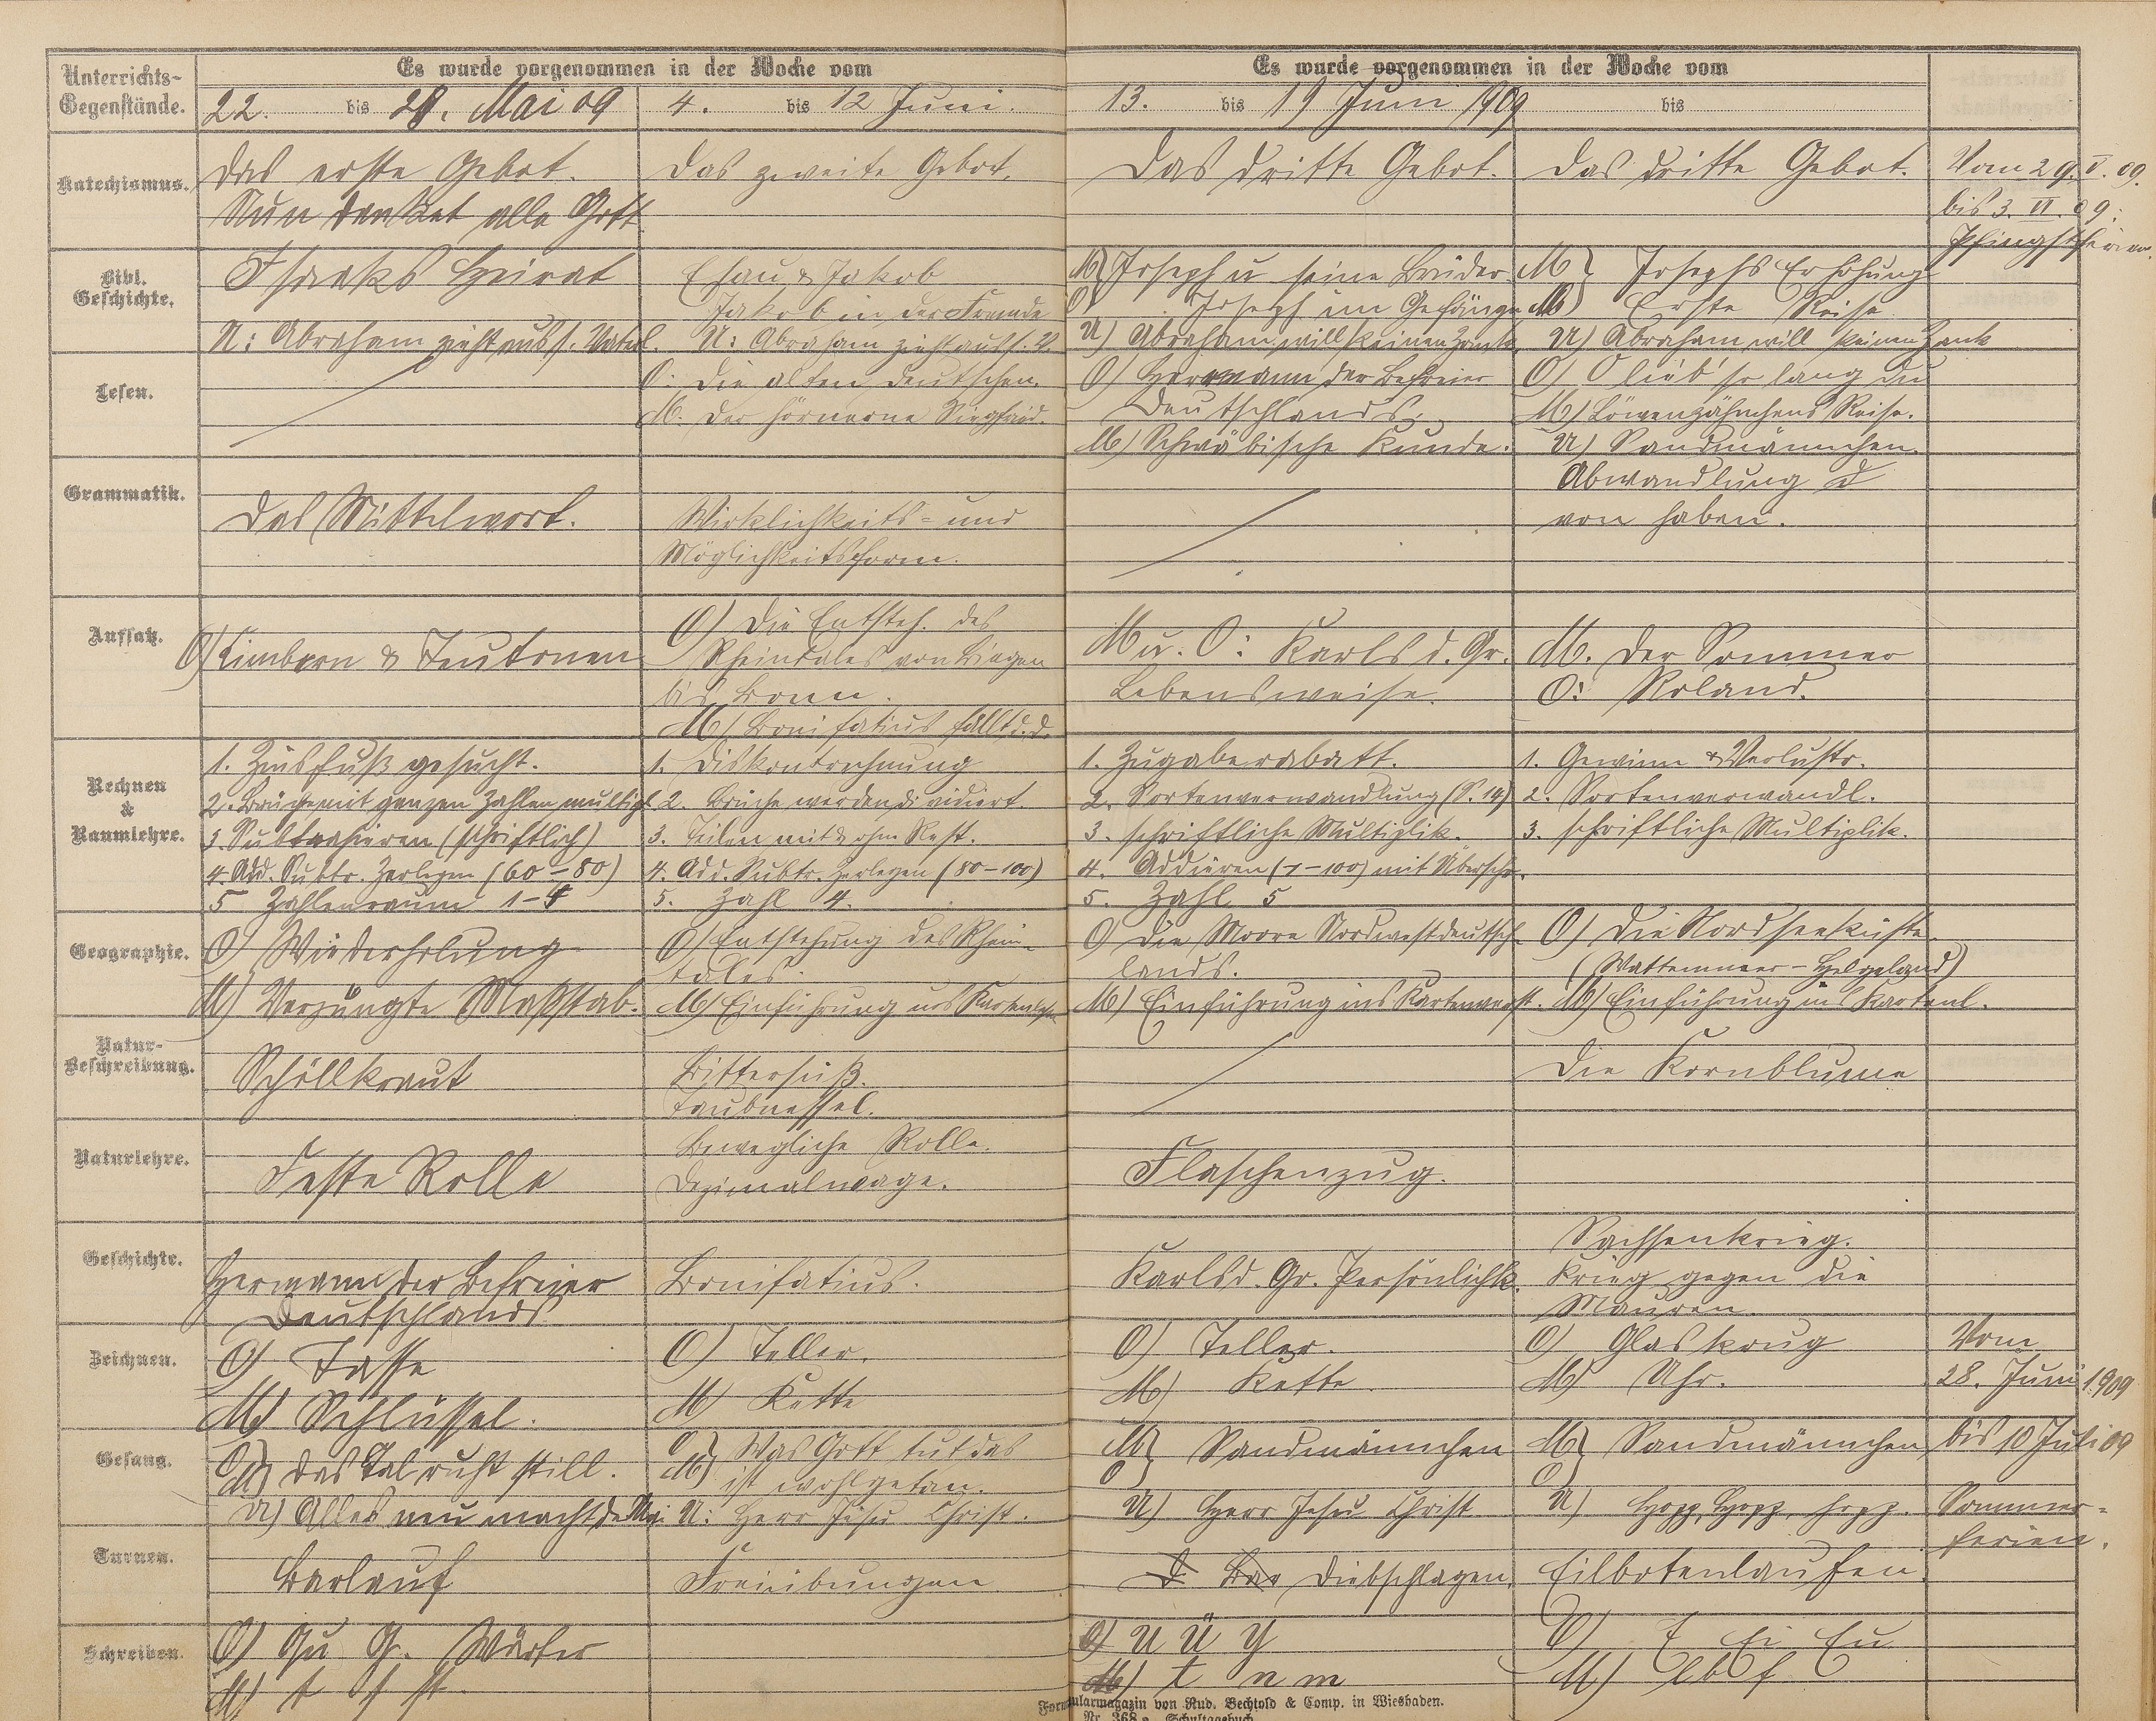 Unterrichts-
Gegenstände.
Es wurde vorgenommen in der Woche vom
22. bis 28. Mai 09
4. bis 12 Juni.
Es wurde vorgenommen in der Woche vom
13. bis 19 Juni 1909
bis
Katechismus.
Das erste Gebot.
Nun danket alle Gott
Das zweite Gebot.
Das dritte Gebot.
Das dritte Gebot.
Vom 29. V. 09.
bis 3. VI. 09.
Pfingstferien.
Bibl.
Geschichte.
Isaaks Heirat
U: Abraham zieht aus s. Vaterl.
Esau & Jakob
Jakob in der Fremde
U: Abraham zieht aus s. V.
M} Joseph u seine Brüder
O Joseph im Gefängn
U) Abraham will keinen Zank.
M} Josephs Erhöhung
Erste Reise
U) Abraham will keinen Zank
Lesen.
O: Die alten Deutschen.
M. Der hörnerne Siegfried.
O) Hermann der Befreier
Deutschlands.
M) Schwäbische Kunde.
O) O lieb' so lang du
M) Löwenzähnchens Reise.
U) Sandmännchen.
Grammatik.
Das Mittelwort.
Wirklichkeits- und
Möglichkeitsform.
Abwandlung
von haben.
Aufsatz.
O) Cimbern & Teutonen
O) Die Entsteh. des
Rheintales von Bingen
bis Bonn.
M) Bonifatius fällt d. D.
M u. O: Karls d. Gr.
Lebensweise.
M. Der Sommer
O: Roland.
Rechnen
&
Raumlehre.
1. Zinsfuß gesucht.
2. Brüche mit ganzen Zahlen multipl.
3. Subtrahieren (schriftlich)
4. Add. Subtr. Zerlegen (60-80)
5 Zahlenraum 1-4
1. Diskontrechnung
2. Brüche werden dividiert.
3. Teilen mit & ohn Rest.
4. Add. Subtr. Zerlegen (80-100)
5. Zahl 4.
1. Zugaberabatt.
2. Sortenverwandlung (S. 14)
3. schriftliche Multiplik.
4. Addieren (1-100) mit Überschr.
5. Zahl 5
1. Gewinn & Verlustr.
2. Sortenverwandl.
3. schriftliche Multiplik.
Geographie.
O) Wiederholung
M) Verjüngte Maßstab.
O) Entstehung des Rhein-
tales.
M) Einführung ins Kartenlesen
O) Die Moore Nordwestdeutsch-
lands.
M) Einführung ins Kartenverst.
O) Die Nordseeküste.
(Wattenmeer - Helgoland)
M) Einführung ins Kartenl.
Natur-
Beschreibung.
Schöllkraut
Bittersüß.
Taubnessel.
Die Kornblume
Naturlehre.
Feste Rolle
Bewegliche Rolle.
Dezimalwage.
Flaschenzug.
Geschichte.
Hermann der Befreier
Deutschlands
Bonifatius.
Karls d. Gr. Persönlichk.
Sachsenkrieg.
Krieg gegen die
Mauren
Zeichnen.
O) Tasse
M) Schlüssel.
O) Teller.
M) Kette
O) Teller.
M) Kette.
O) Glaskrug
M) Uhr.
Vom
28. Juni 1909
bis 10 Juli 09
Sommer-
ferien.
Gesang.
O
M} Das Tal ruht still.
U) Alles neu macht der Mai
O
M} Was Gott tut das
ist wohlgetan.
U: Herr Jesu Christ.
M} Sandmännchen
O
U) Herr Jesu Christ
M} Sandmännchen
O
U) Hopp, Hopp, hopp.
Turnen.
Barlauf
Freiübungen
D. Bar Diebschlagen.
Eilbotenlaufen.
Schreiben.
O) Qu Q. Wörter
M) t f st.
O) U Ü Y
M) t n m
O) E Ei Eu
M) l b f
Formularmagazin von Rud. Bechtold & Comp. in Wiesbaden.
Nr. 368 a Schultagebuch